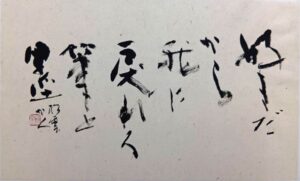 好きだ
から
我に
戻れる
筆と
墨